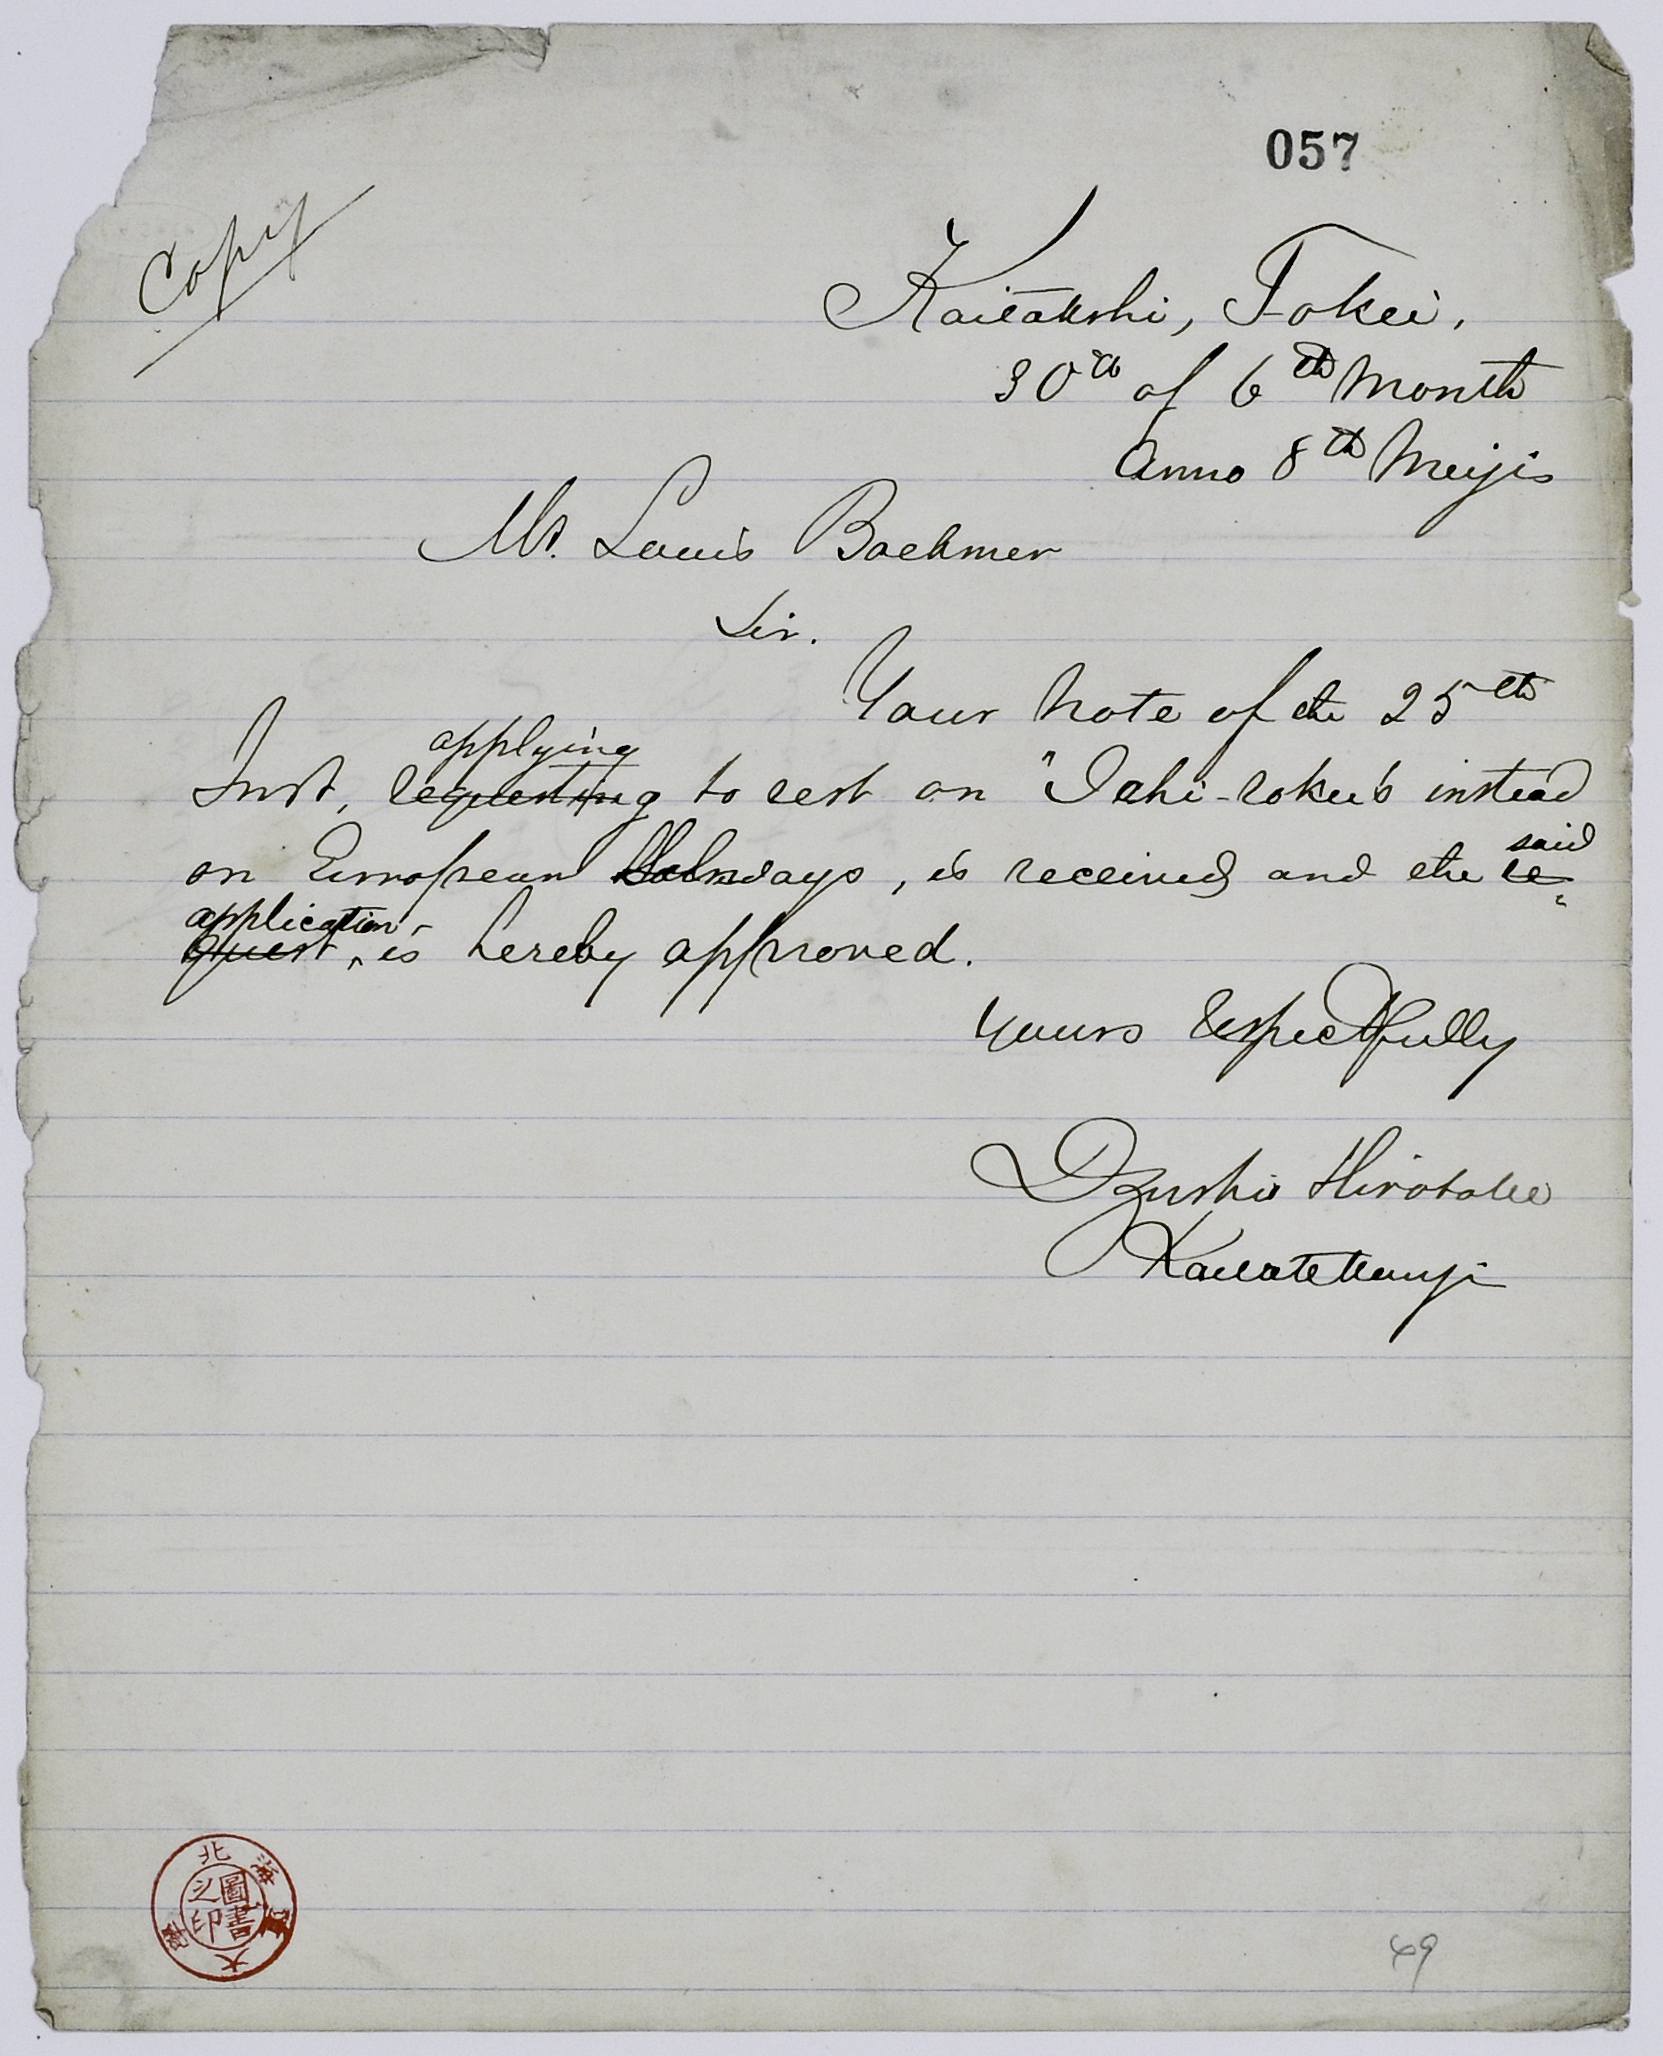 057
Copy
Kaitakushi, Tokei.
30th of 6th Month
Anno 8th Meiji
Mr. Louis Boehmer
Sir.
Your Note of the 25th
applying
Inst, requesting to rest on "Ichi-roku's instead
said
on European Holindays, is received and the re-
application
quest, is hereby approved.
Yours Respectfully
Dzushio Hirotake
Kaitakukanji
北海道大學
圖書之印
49